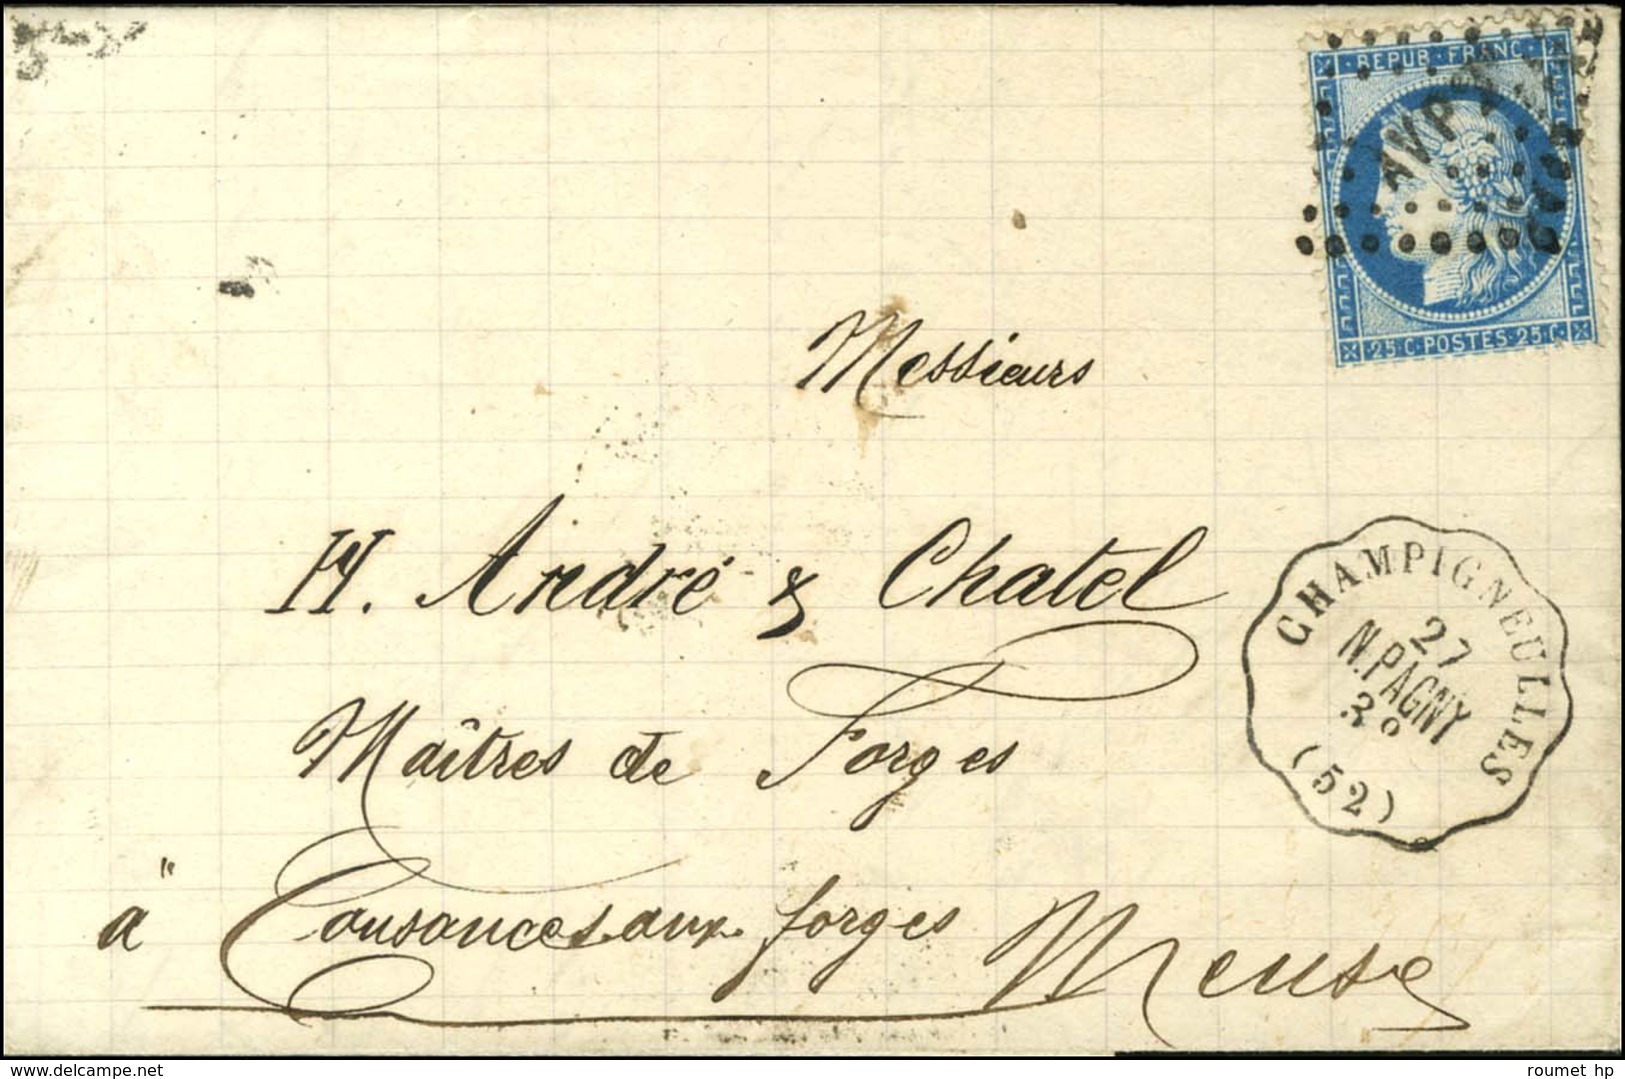 REPUB·FRANC·
25·C·POSTES·25·C·
Messieurs
H. André & Chatel
Maîtres de Forges
à Cousances aux forges Meuse
CHAMPIGNEULLES
27
N.PAGNY
(52)
delcampe.net
roumet hp